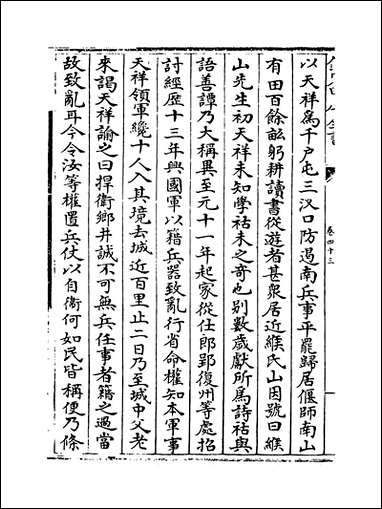 以天祥為千户屯三汊口防遏南兵事平罷歸居偃師南山
有田百餘畝躬耕讀書從遊者甚衆居近緱氏山因號曰緱
山先生初天祥未知學祜未之奇也别數歳獻所為詩祜與
語善譚乃大稱異至元十一年起家從仕郎郢復州等處招
討經歴十三年興國軍以籍兵器致亂行省命權知本軍事
天祥領軍纔十人入其境去城近百里止二日乃至城中父老
來謁天祥諭之曰捍衛鄉井誠不可無兵任事者籍之過當
故致亂耳今令汝等權置兵仗以自衛何如民皆稱便乃條
卷四十三